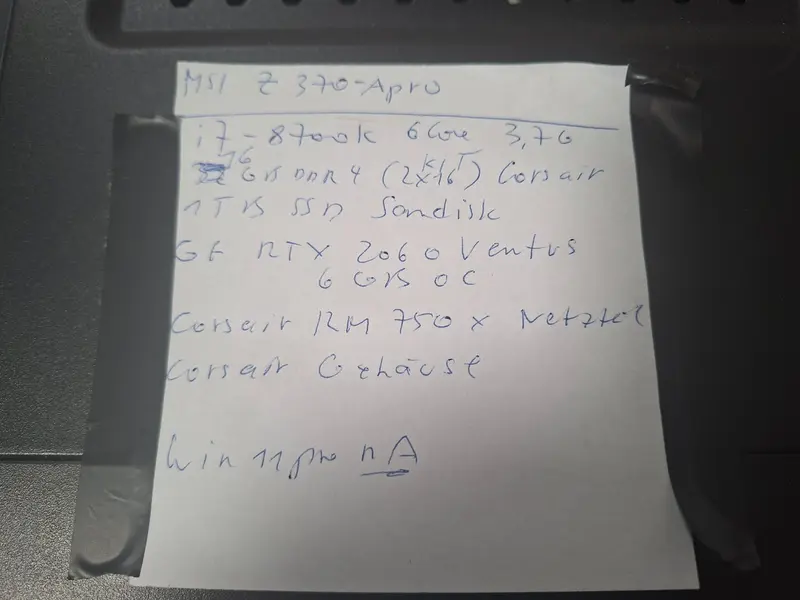 MSI Z 370-A pro
i7-8700k 6 Core 3,7G
16 GB DDR4 (2x16) Corsair
1TB SSD Sandisk
GF RTX 2060 Ventus
6 GB OC
Corsair RM 750 x Netzteil
Corsair Gehäuse
Win 11 pro nA